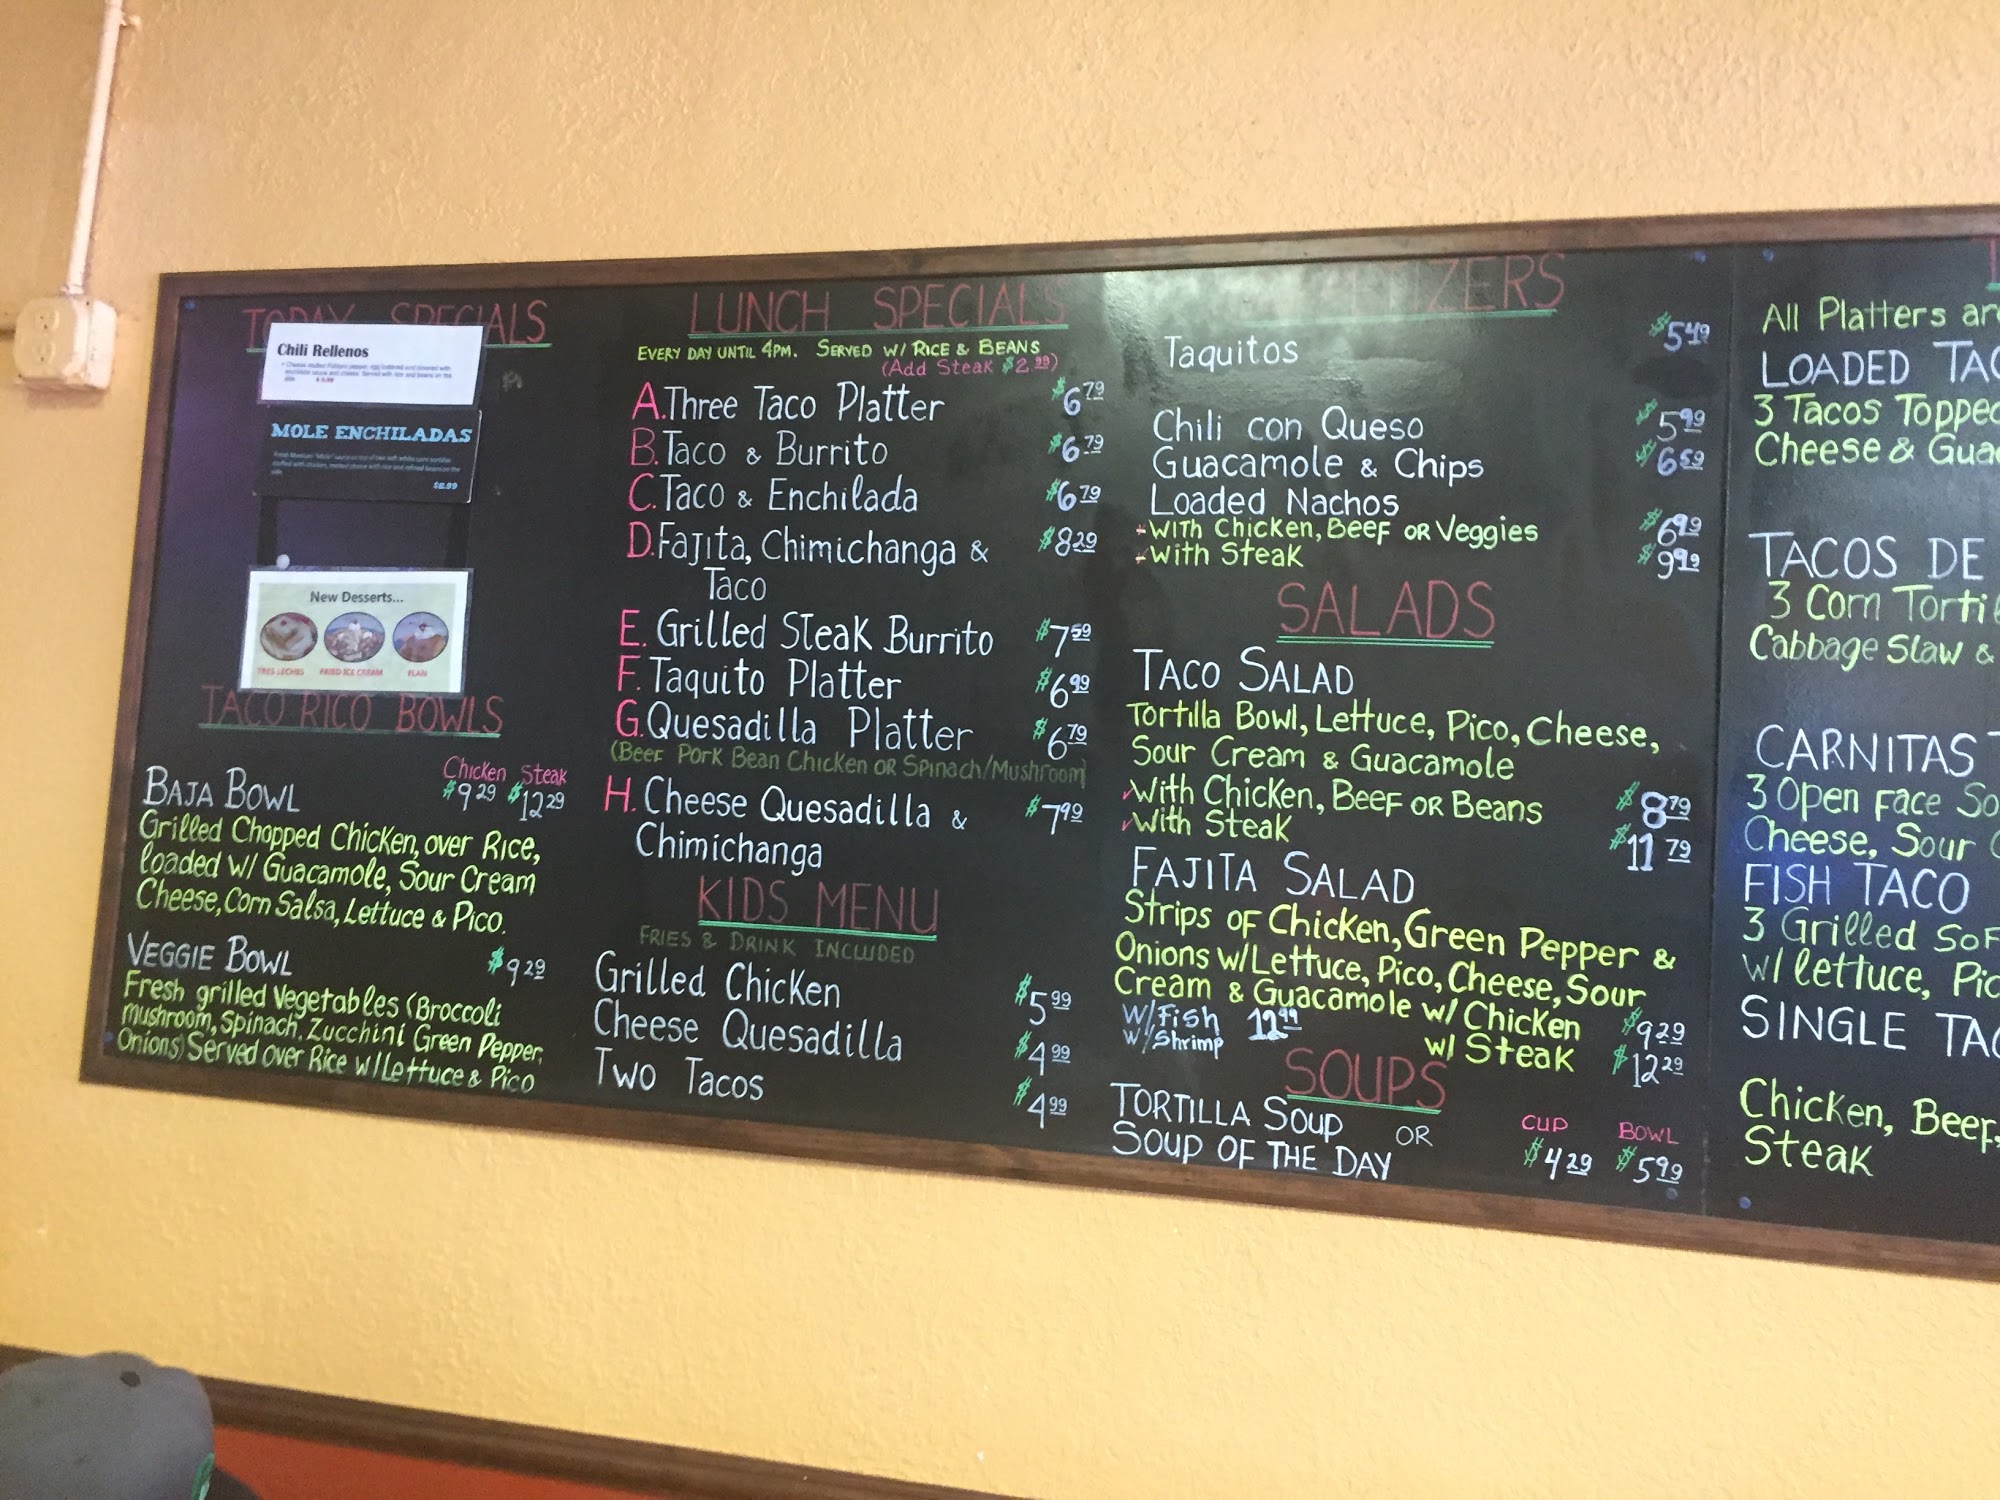 TODAY SPECIALS
Chili Rellenos
MOLE ENCHILADAS
New Desserts...
TRES LECHES FRIED ICE CREAM FLAN
TACO RICO BOWLS
Chicken Steak
BAJA BOWL $9.29 $12.29
Grilled Chopped Chicken, over Rice,
loaded w/ Guacamole, Sour Cream
Cheese, Corn Salsa, Lettuce & Pico.
VEGGIE BOWL $9.29
Fresh grilled Vegetables (Broccoli
mushroom, Spinach, Zucchini Green Pepper,
Onions) Served over Rice w/ Lettuce & Pico
LUNCH SPECIALS
EVERY DAY UNTIL 4PM. SERVED W/ RICE & BEANS
(Add Steak $2.99)
A. Three Taco Platter $6.79
B. Taco & Burrito $6.79
C. Taco & Enchilada $6.79
D. Fajita, Chimichanga & $8.29
Taco
E. Grilled Steak Burrito $7.59
F. Taquito Platter $6.99
G. Quesadilla Platter $6.79
(Beef Pork Bean Chicken or Spinach/Mushroom)
H. Cheese Quesadilla & $7.99
Chimichanga
KIDS MENU
FRIES & DRINK INCLUDED
Grilled Chicken $5.99
Cheese Quesadilla $4.99
Two Tacos $4.99
Taquitos $5.49
Chili con Queso $5.99
Guacamole & Chips $6.59
Loaded Nachos
-With Chicken, Beef or Veggies $6.99
-With Steak $9.99
SALADS
TACO SALAD
Tortilla Bowl, Lettuce, Pico, Cheese,
Sour Cream & Guacamole
✓With Chicken, Beef or Beans $8.79
✓With Steak $11.79
FAJITA SALAD
Strips of Chicken, Green Pepper &
Onions w/Lettuce, Pico, Cheese, Sour
Cream & Guacamole w/ Chicken $9.29
w/ Steak $12.29
w/Fish 12.99
w/Shrimp
SOUPS
CUP BOWL
TORTILLA SOUP OR
SOUP OF THE DAY $4.29 $5.99
All Platters
LOADED
3 Tacos Topped
Cheese &
TACOS DE
3 Corn
Cabbage Slaw &
CARNITAS
3 Open Face
Cheese, Sour
FISH TACO
3 Grilled
w/ lettuce,
SINGLE
Chicken, Beef,
Steak